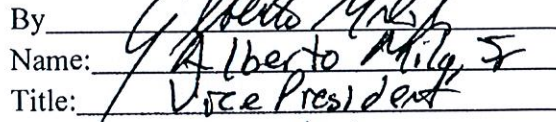 By
Name: Alberto Mila, Jr
Title: Vice President